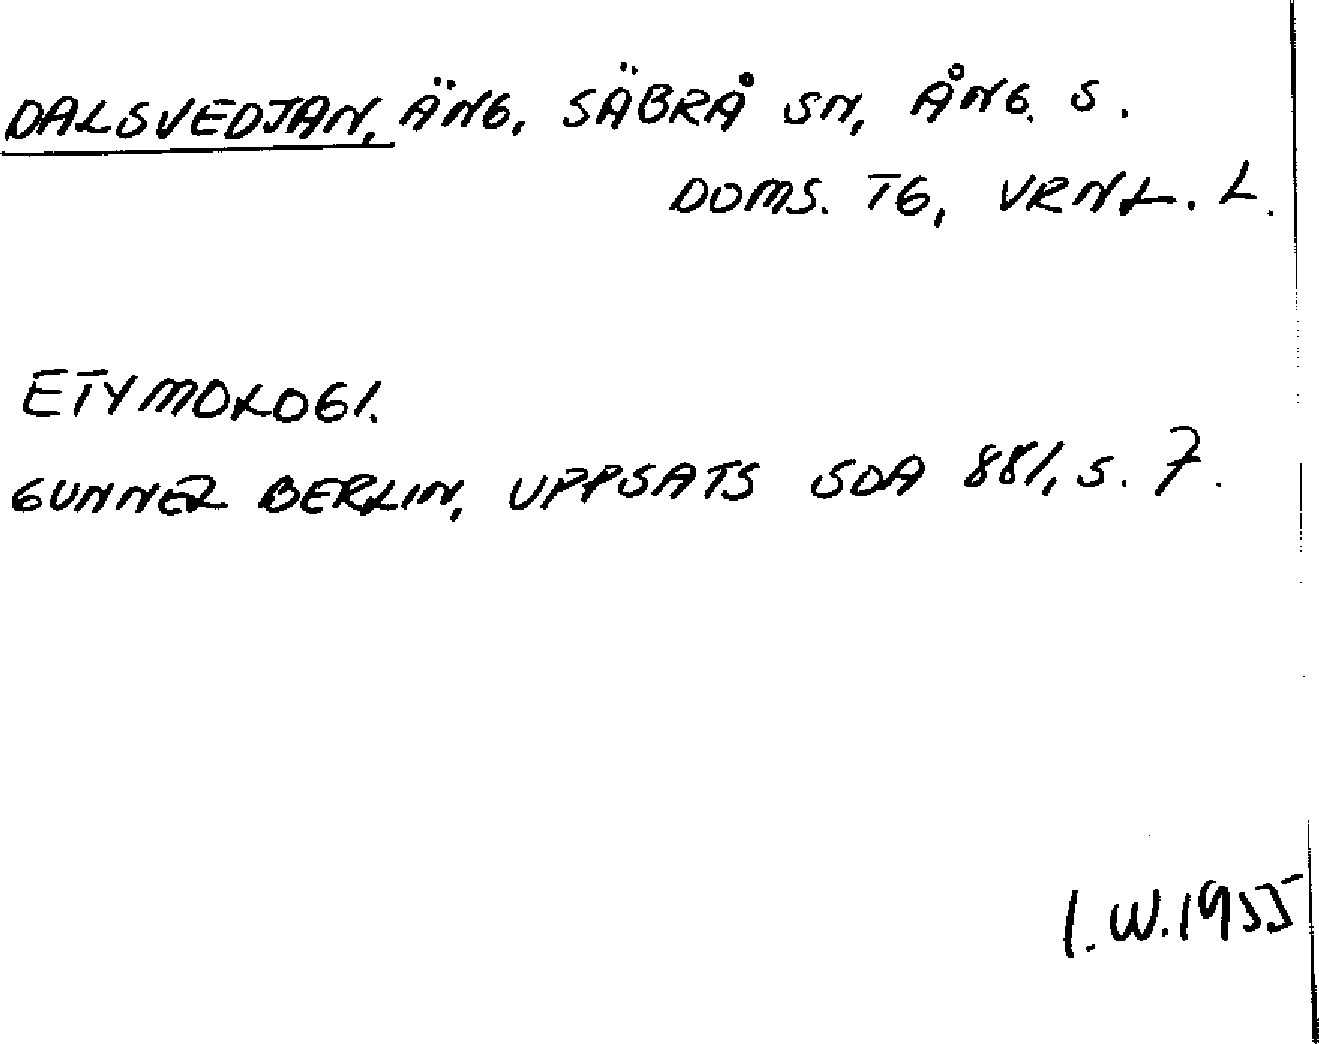 DALSVEDJAN, ÄNG, SÄBRÅ SN, ÅNG. S.
DOMS. TG, VRNL. L.
ETYMOLOGI.
GUNNEL BERLIN, UPPSATS SOA 881, S. 7.
I.W.1955